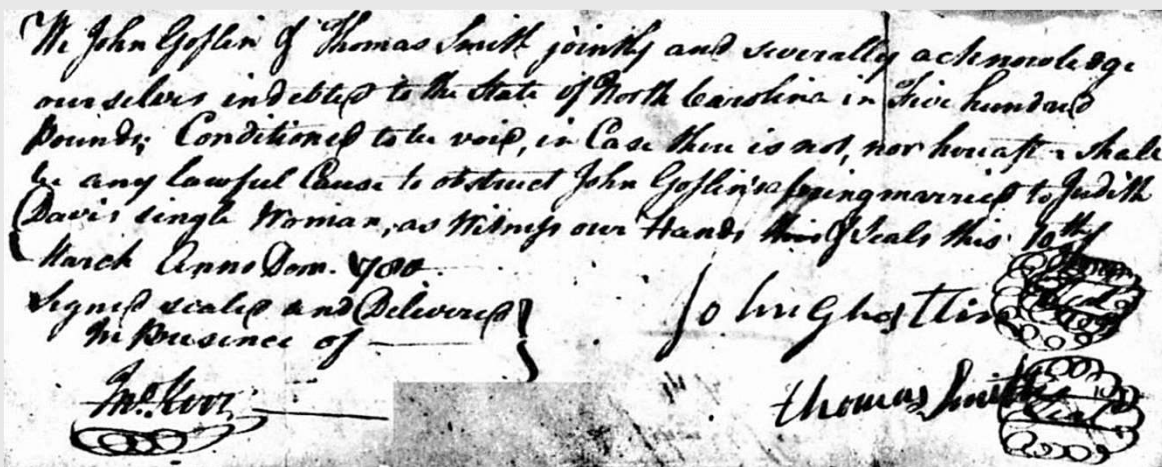 We John Goslin & Thomas Smith jointly and severally acknowledge
ourselves indebted to the State of North Carolina in Five hundred
Pounds; Conditioned to be void, in Case there is not, nor hereafter shall
be any lawful Cause to obstruct John Goslin's being married to Judith
Davis single Woman, as Witness our Hands & Seals this 10th
March Anno Dom. 1780
Signed sealed and Delivered
In Presence of
John Ghostlin Seal
Thomas Smith Seal
Jno. Kerr